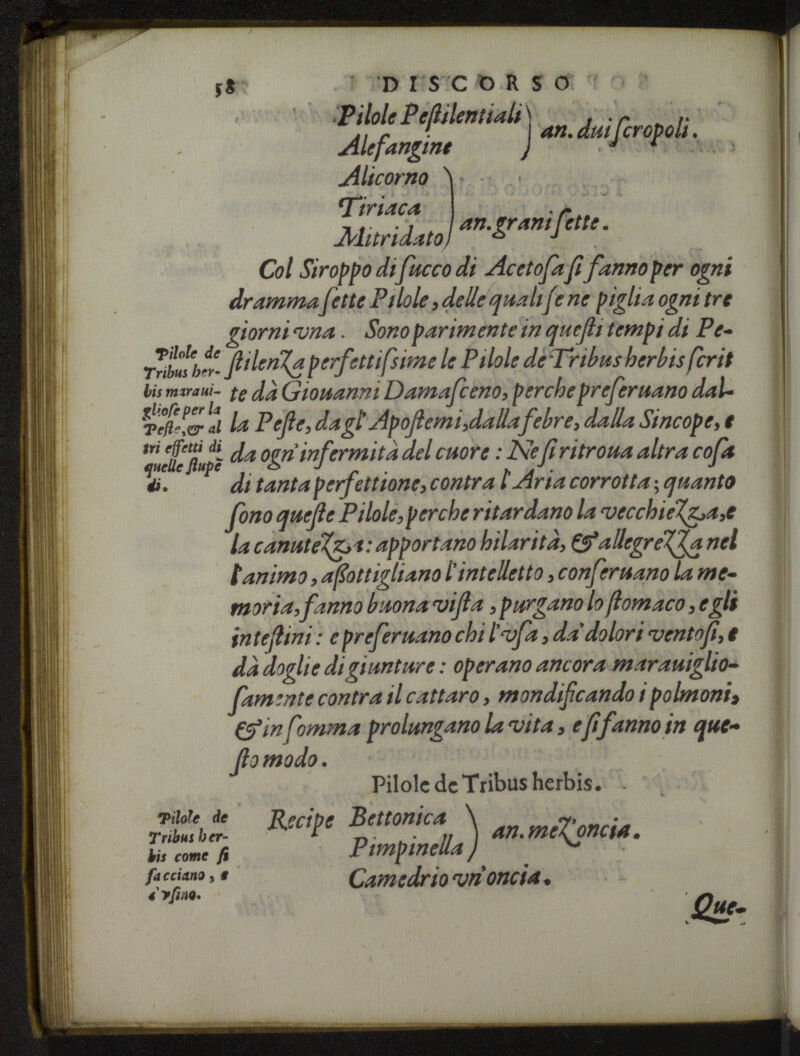 58 DISCORSO
Pilole Pestilentiali } an. dui scropoli.
Alefangine
Alicorno
Tiriaca } an. grani sette.
Mitridato
Col Siroppo di succo di Acetosa si fanno per ogni
dramma sette Pilole, delle quali se ne piglia ogni tre
giorni vna. Sono parimente in questi tempi di Pe-
stilenza perfettissime le Pilole de Tribus herbis scrit
te dà Giouanni Damasceno, perche preseruano dal-
la Peste, da gl' Apostemi, dalla febre, dalla Sincope, e
da ogn' infermità del cuore: Ne si ritroua altra cosa
di tanta perfettione, contra l'Aria corrotta; quanto
sono queste Pilole, perche ritardano la vecchiezza, e
la canutezza: apportano hilarità, & allegrezza nel
l'animo, assottigliano l'intelletto, conseruano la me-
moria, fanno buona vista, purgano lo stomaco, e gli
intestini: e preseruano chi l'vsa, da' dolori ventosi, e
dà doglie di giunture: operano ancora marauiglio-
samente contra il cattaro, mondificando i polmoni,
& in somma prolungano la vita, e si fanno in que-
sto modo.
Pilole de Tribus herbis.
Recipe Bettonica } an. mez'oncia.
Pimpinella
Camedrio vn' oncia.
Que-
Pilole de
Tribus her-
bis maraui-
gliose per la
Peste, & al
tri effetti di
quelle stupē
di.
Pilole de
Tribus her-
bis come si
facciano, e
s'vsino.